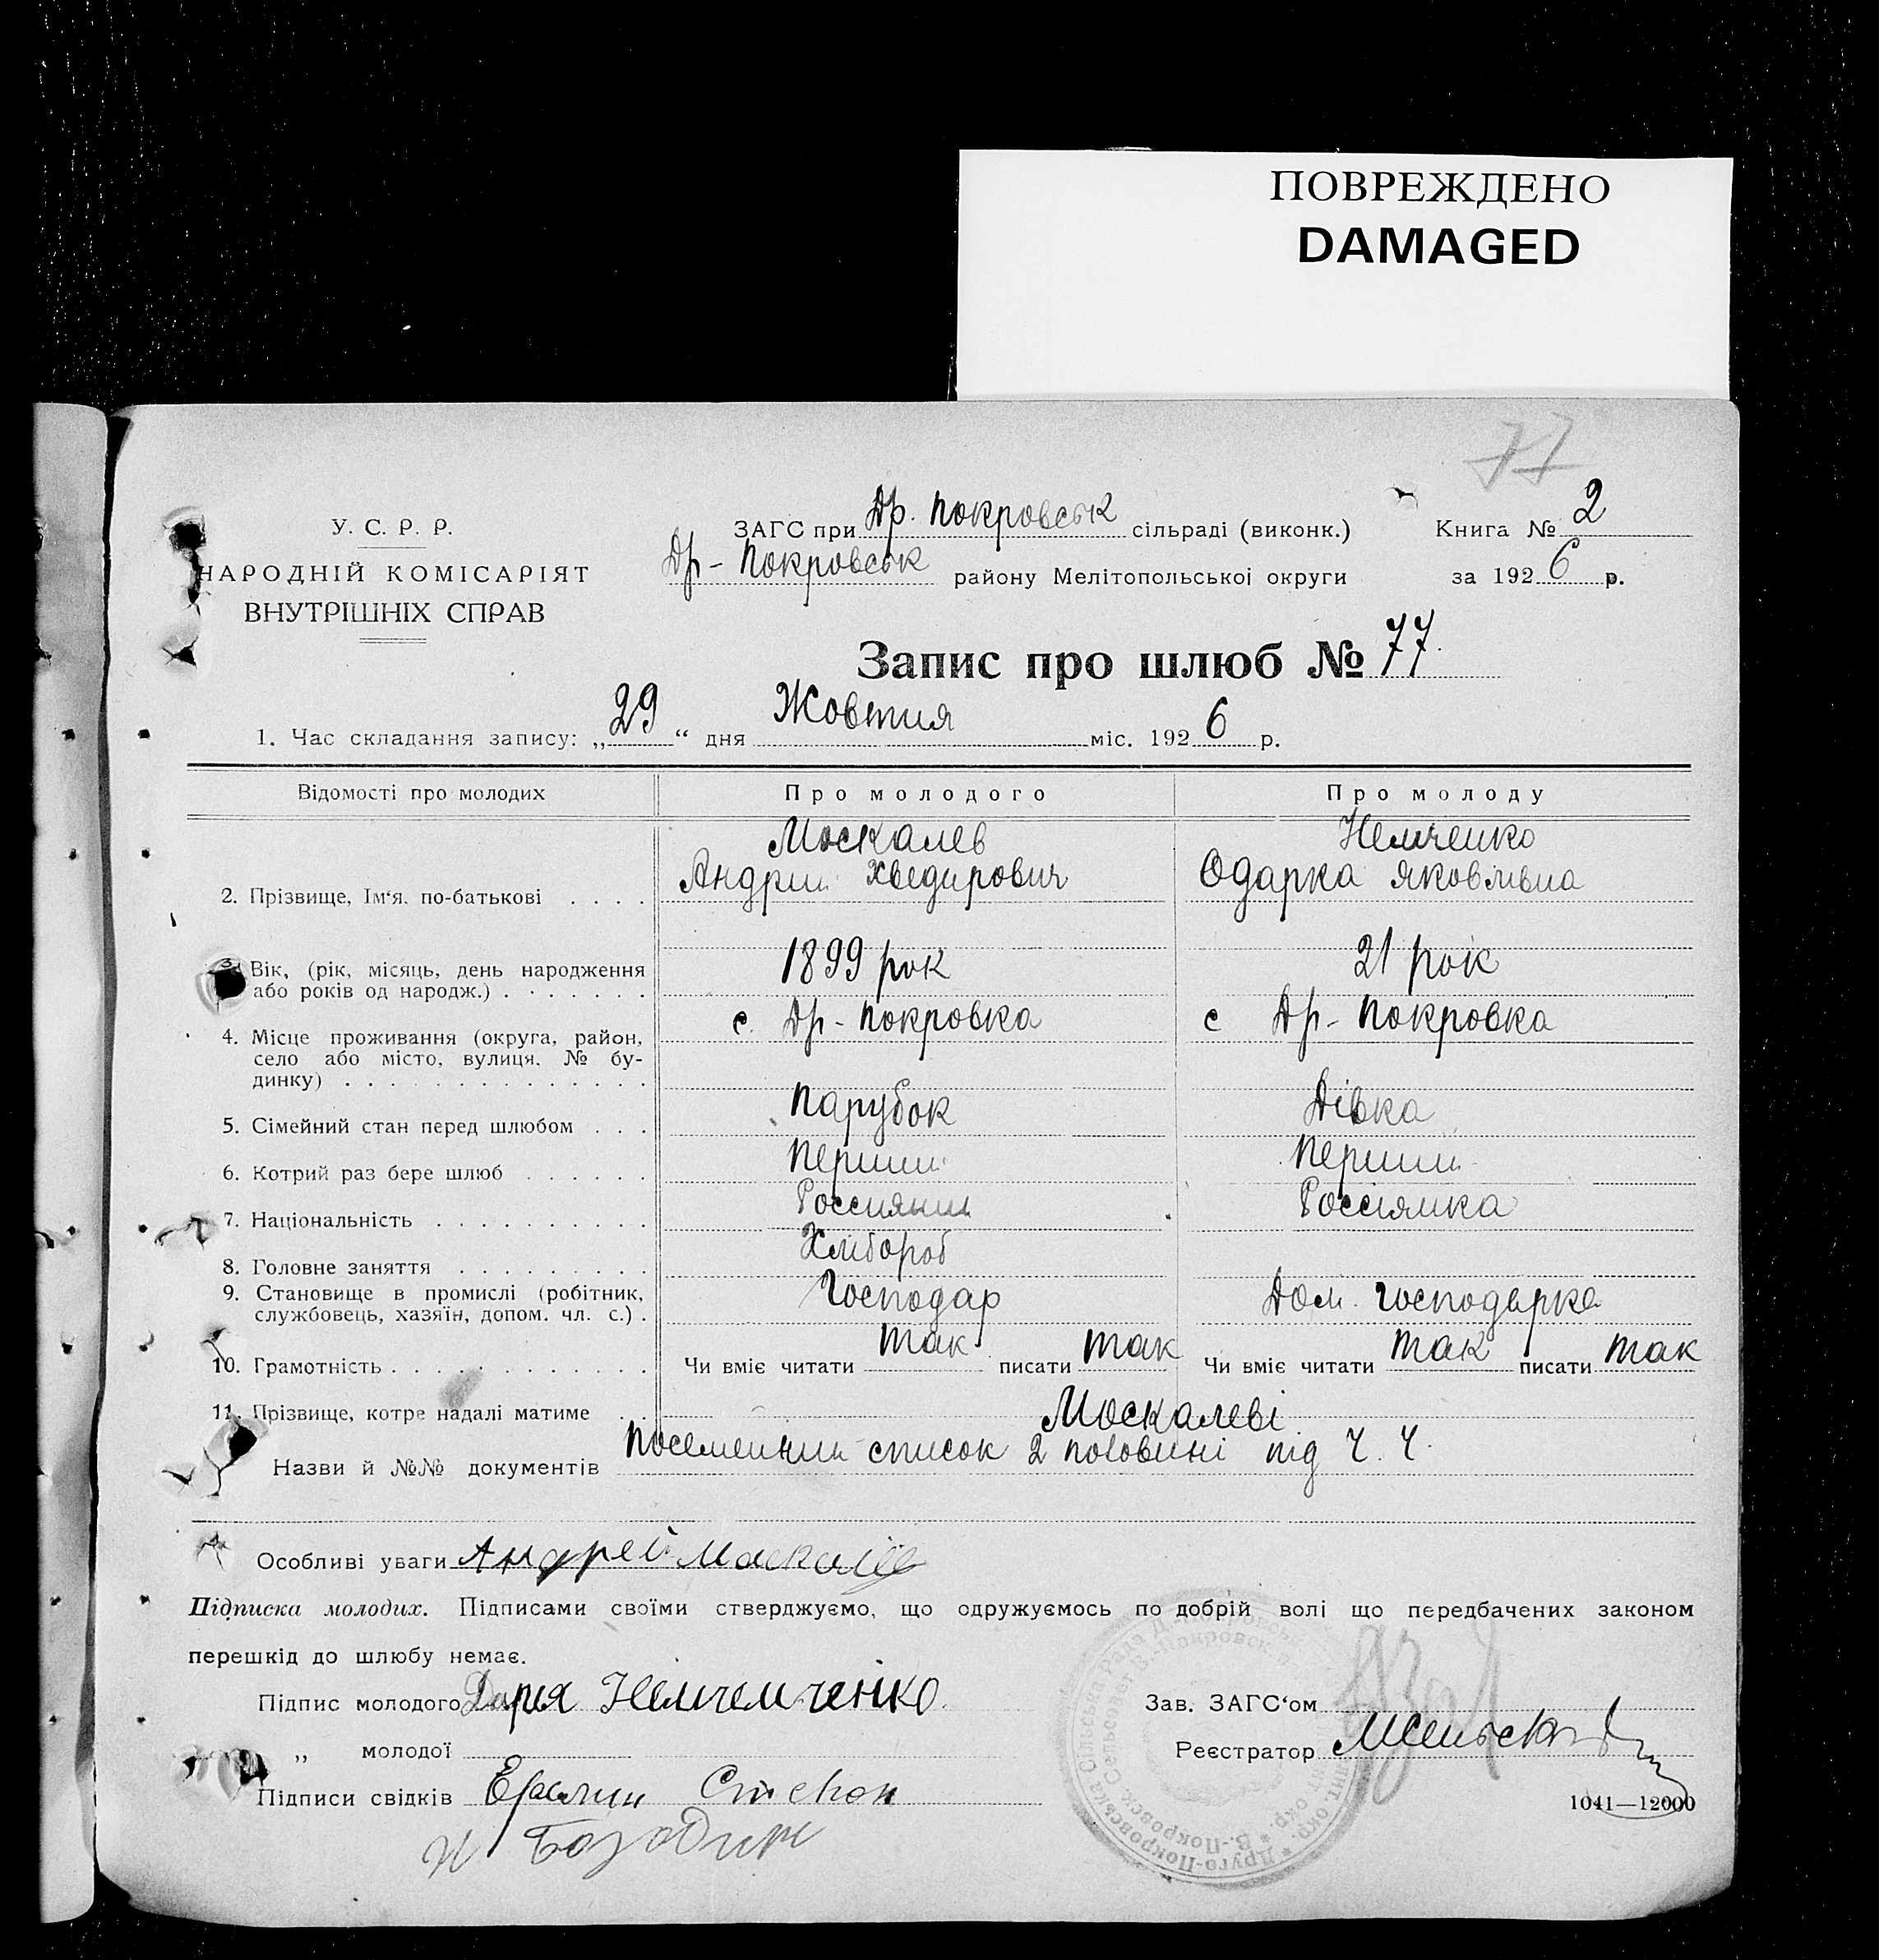 ПОВРЕЖДЕНО
DAMAGED
77
У. С. Р. Р.
НАРОДНІЙ КОМІСАРІЯТ
ВНУТРІШНІХ СПРАВ
ЗАГС при Др. Покровськ сільраді (виконк.)
Др-Покровськ району Мелітопольської округи
Книга № 2
за 1926 р.
Запис про шлюб № 77.
1. Час складання запису: „29“ дня Жовтня міс. 1926 р.
Відомості про молодих Про молодого Про молоду
Москалев Немченко
2. Прізвище, Ім‘я, по-батькові . . . . Андрій Хведирович Одарка Яковливна
3. Вік, (рік, місяць, день народження 1899 рок 21 рок
або років од народж.) . . . . . . .
4. Місце проживання (округа, район, с. Др-Покровка с Др-Покровка
село або місто, вулиця, № бу-
динку) . . . . . . . . . . . . . .
5. Сімейний стан перед шлюбом . . . Парубок Дівка
6. Котрий раз бере шлюб . . . . . . Перший Перший
7. Національність . . . . . . . . . . Россиянин Россіянка
8. Головне заняття . . . . . . . . . Хлібороб
9. Становище в промислі (робітник, Господар Дом. господарка
службовець, хазяїн, допом. чл. с.) .
10. Грамотність . . . . . . . . . . . . Чи вміє читати так писати так Чи вміє читати так писати так
11. Прізвище, котре надалі матиме . . Москалеві
Назви й №№ документів Посемейний список 2 половині під Ч. 4.
Особливі уваги Андрей Москалев
Підписка молодих. Підписами своїми стверджуємо, що одружуємось по добрій волі що передбачених законом
перешкід до шлюбу немає.
Підпис молодого Дария
„ молодої
Підписи свідків
Зав. ЗАГС‘ом
Реєстратор
1041—12000